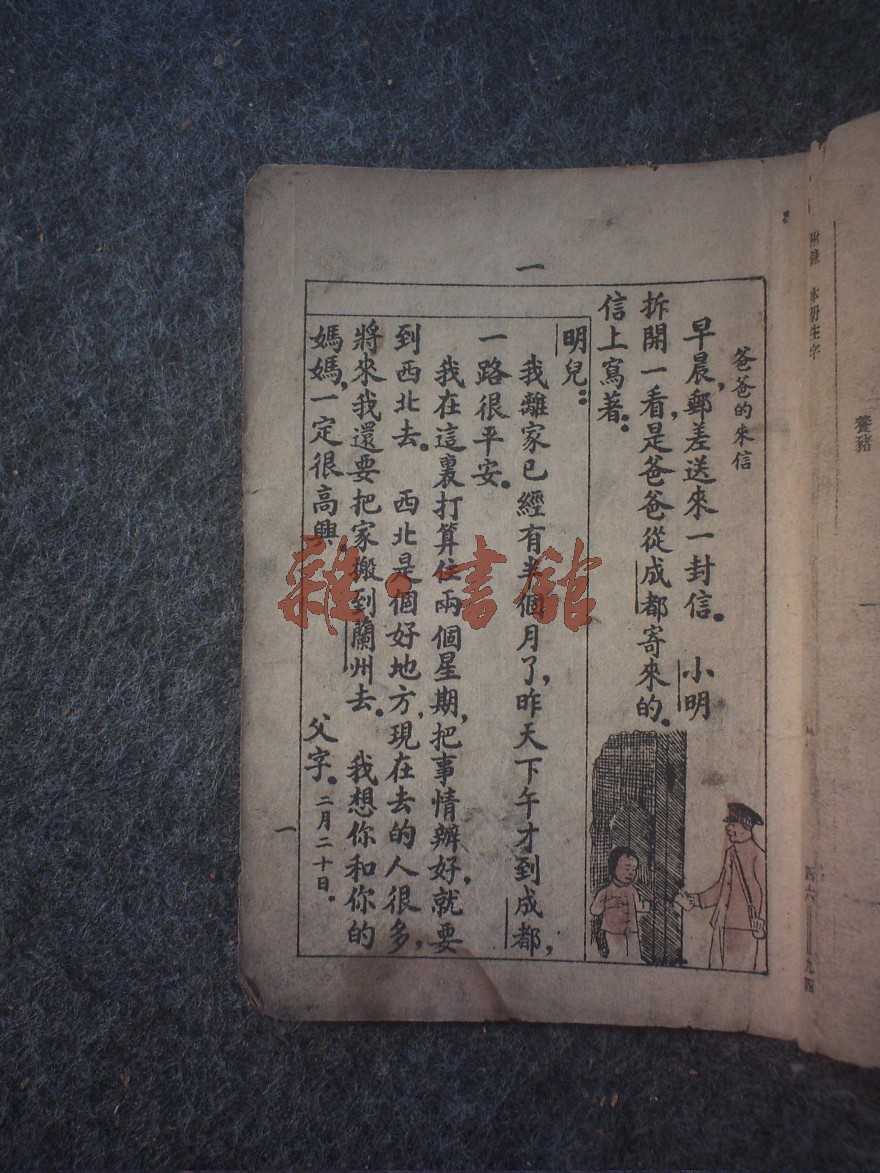 養豬
一
附錄 本冊生字 四六——九四
一
爸爸的來信
早晨,郵差送來一封信。 小明
拆開一看,是爸爸從成都寄來的。
信上寫著:
明兒:
我離家已經有半個月了,昨天下午才到成都,
一路很平安。
我在這裏打算住兩個星期,把事情辦好,就要
到西北去。 西北是個好地方,現在去的人很多,
將來我還要把家搬到蘭州去。 我想你和你的
媽媽,一定很高興。 父字。二月二十日。
一
雜·書館